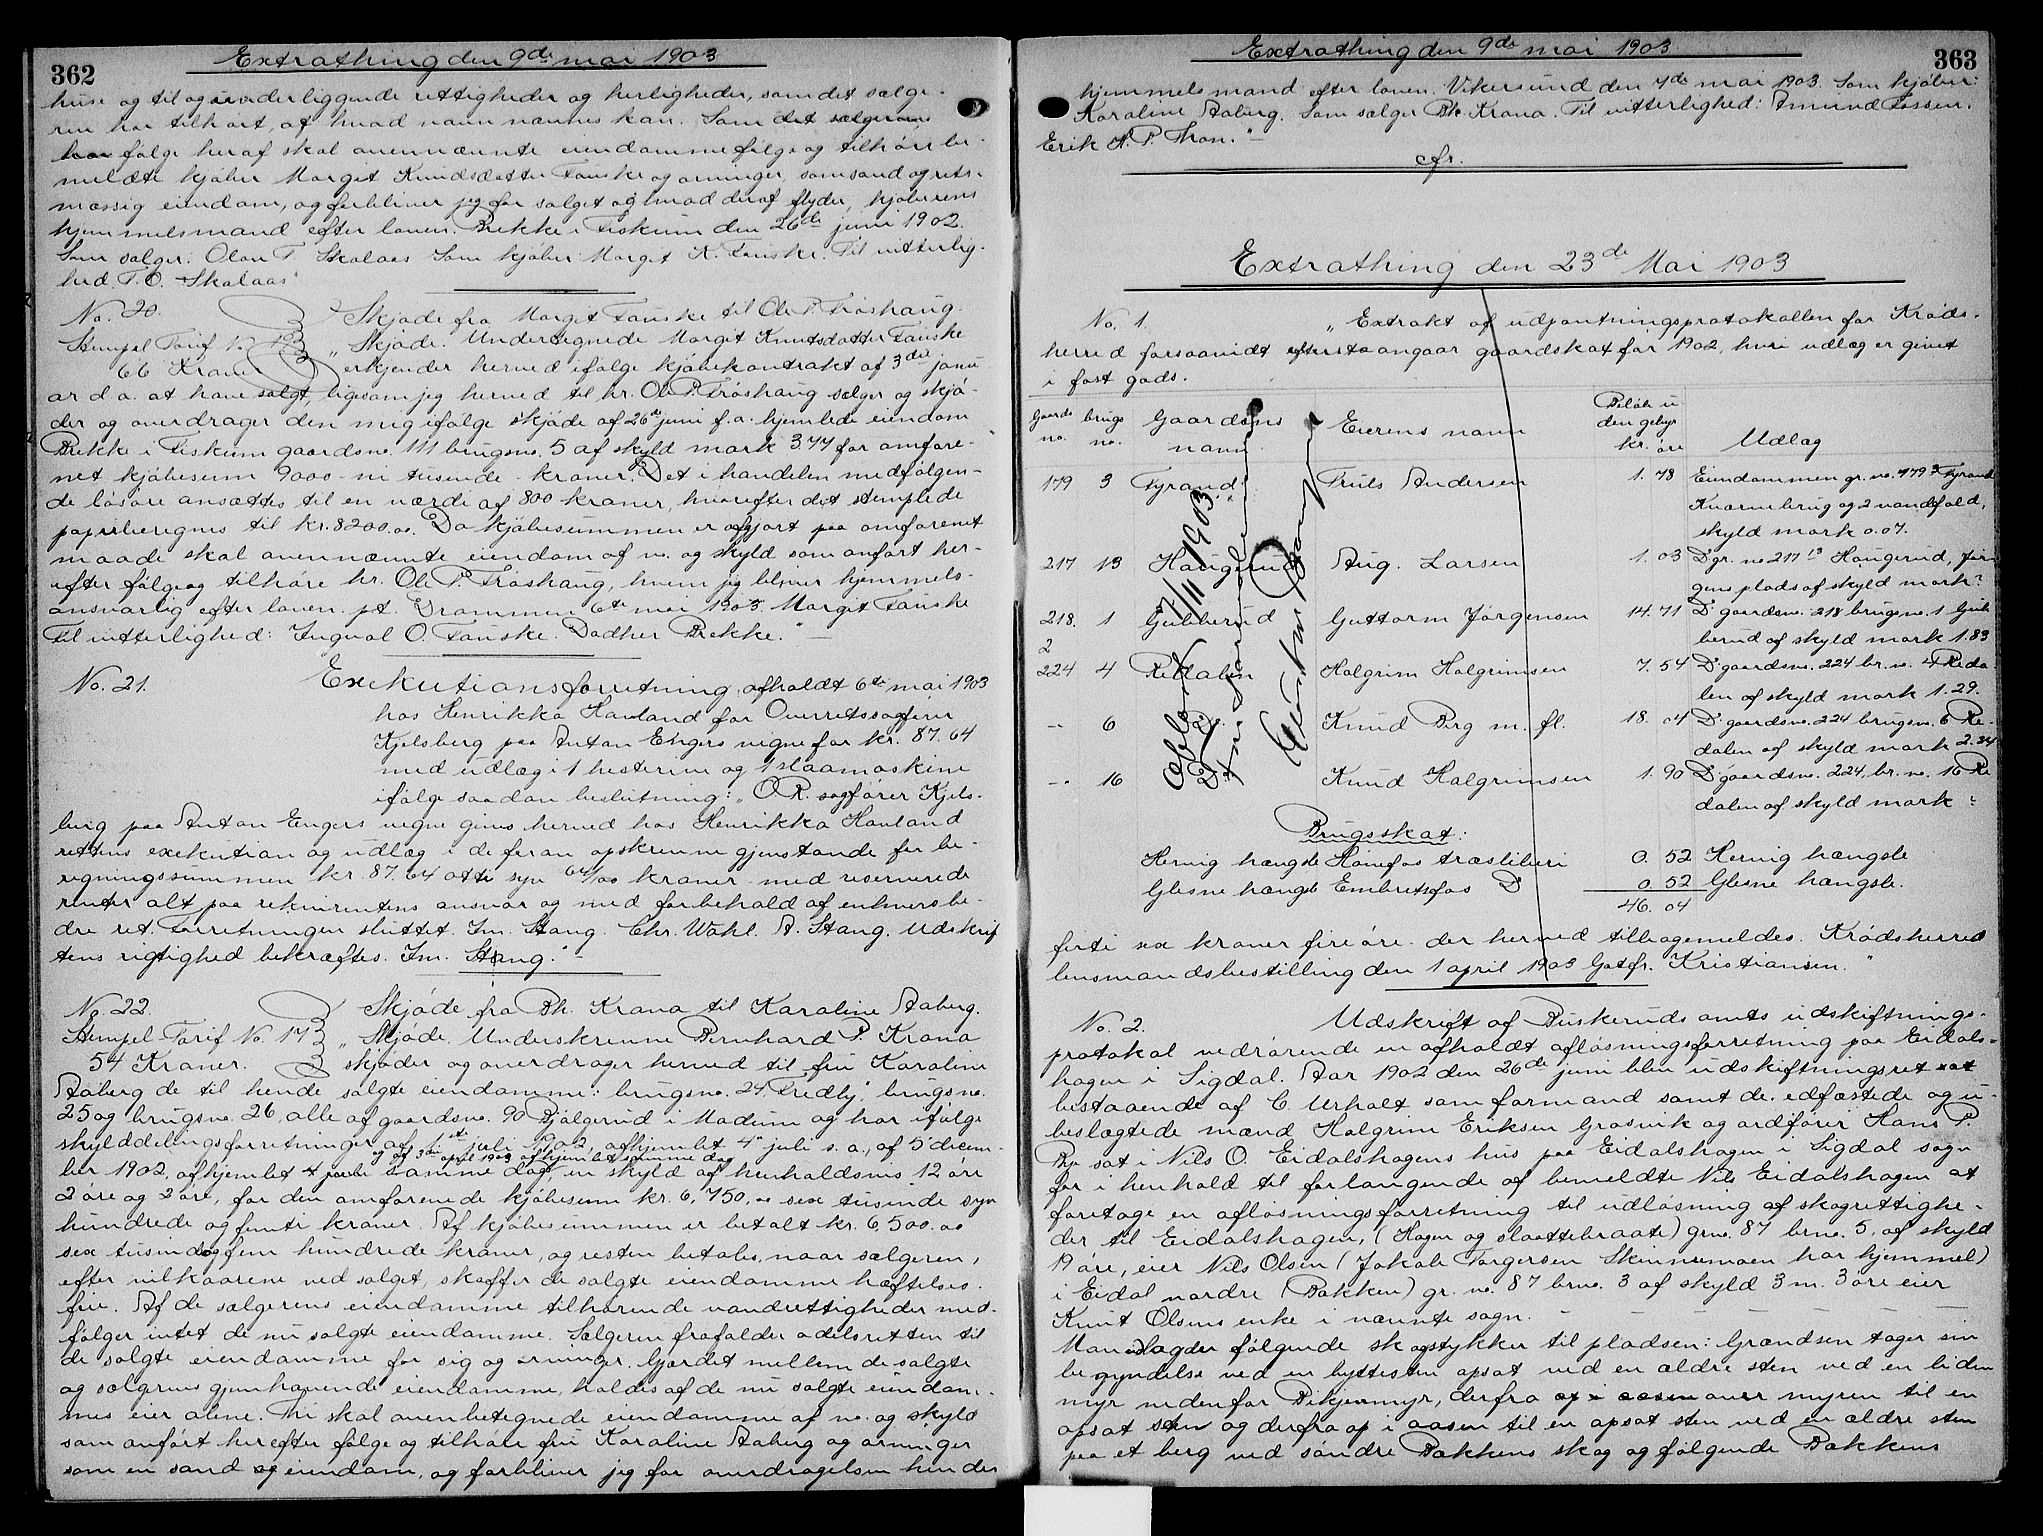 362
Extrathing den 9de mai 1903
huse og til og underliggende rettigheder og herligheder, som det sælge-
ren har tilhørt, af hvad navn nævnes kan. Som det sælgerens
har følge heraf skal ovennævnte eiendomme følge og tilhøre be-
meldte kjøber Margit Knudsdatter Fauske og arvinger, som sand og rets-
mæssig eiendom, og forbliver jeg for salget og hvad deraf flyder, kjøberens
hjemmelsmand efter loven. Bekke i Fiskum den 26de juni 1902.
Som sælger: Olav T. Skalaas Som kjøber: Margit K. Fauske. Til vitterlig-
hed T. O. Skalaas"
No. 20. Skjøde fra Margit Fauske til Ole P. Frøshaug.
Stempel Tarif No. „Skjøde. Undertegnede Margit Knutsdatter Fauske
66 Kroner erkjender herved ifølge kjøbekontrakt af 3die janu-
ar d. a. at have solgt, ligesom jeg herved til hr. Ole P. Frøshaug sælger og skjø-
der og overdrager den mig ifølge skjøde af 26de juni f. a. hjemlede eiendom
Bekke i Fiskum gaardsno. 111 brugsno. 5 af skyld mark 3.77 for omfore-
net kjøbesum 9000 - ni tusende - kroner. Det i handelen medfølgen-
de løsøre ansættes til en værdi af 800 kroner, hvorefter det stemplede
papir beregnes til kr. 8200.00. Da kjøbesummen er afgjort paa omforenet
maade skal ovennævnte eiendom af no. og skyld som anført her-
efter følge og tilhøre hr. Ole P. Frøshaug, hvem jeg bliver hjemmels-
ansvarlig efter loven. pt. Drammen 6te mai 1903. Margit Fauske
Til vitterlighed: Ingval O. Fauske. Bekke."
No. 21. Exekutionsforretning, afholdt 6te mai 1903
hos Henrikka Havland for Overretssagfører
Kjelsberg paa Anton Engers vegne for kr. 87.64
med udlæg i 1 hesterive og 1 slaamaskine
ifølge saadan beslutning: „O.R. sagfører Kjels-
berg paa Anton Engers vegne gives herved hos Henrikka Havland
rettens exekution og udlæg i de foran opskrevne gjenstande for be-
regningssummen kr. 87.64 otti syv 64/00 kroner med reserverede
renter alt paa rekvirentens ansvar og med forbehold af enhvers be-
dre ret. Forretningen sluttet. Im. Stang. Chr. Wahl. A. Stang. Udskrif
tens rigtighed bekræftes. Im. Stang."
No. 22. Skjøde fra Bh. Krona til Karoline Aaberg.
Stempel Tarif No. 17 „Skjøde. Underskrevne Bernhard P. Krona
54 Kroner. skjøder og overdrager herved til fru Karoline
Aaberg de til hende solgte eiendomme: brugsno. 24 "Fredly", brugsno.
25 og brugsno. 26, alle af gaardsno. 90 Bjølgerud i Modum og har ifølge
skylddelingsforretninger af 1ste juli 1902, afhjemlet 4de juli s. a., af 5 decem-
og af 3die april 1903 afhjemlet samme dag
ber 1902, afhjemlet samme dag, en skyld af henholdsvis 12 øre
2 øre og 2 øre, for den omforenede kjøbesum kr. 6,750.00 sex tusinde syv
hundrede og femti kroner. Af kjøbesummen er betalt kr. 6500.00
sex tusind og fem hundrede kroner, og resten betales, naar sælgeren,
efter vilkaarene ved salget, skaffer de solgte eiendomme hæftelses-
frie. Af de sælgerens eiendomme tilhørende vandrettigheder med-
følger intet de nu solgte eiendomme. Sælgeren frafalder odelsretten til
de solgte eiendomme for sig og arvinger. Gjærdet mellem de solgte
og sælgrens gjenhavende eiendomme, holdes af de nu solgte eiendom-
mes eier alene. Thi skal ovenbetegnede eiendomme af no. og skyld
som anført herefter følge og tilhøre fru Karoline Aaberg og arvinger
som en sand og eiendom, og forbliver jeg for overdragelsen hendes
363
Extrathing den 9de mai 1903
hjemmelsmand efter loven. Vikersund den 7de mai 1903. Som kjøber:
Karoline Aaberg. Som sælger Bh. Krona. Til vitterlighed: Amund Fossen.
Erik A. P. Thon."
cfr.
Extrathing den 23de Mai 1903
No. 1. „Extrakt af udpantningsprotokollen for Krøds-
herred forsaavidt angaar gaardskat for 1902, hvori udlæg er givet
i fast gods.
Gaards no. brugs no. Gaardens navn Eierens navn Beløb u den gebyr kr. øre Udlæg
179 3 Fyrand Truls Andersen 1. 78 Eiendommen gr. no. 179 3 Fyrand
Kværnebrug og 2 vandfald,
skyld mark 0.07.
217 13 Haugerud Aug. Larsen 1. 03 Do gr. no 217 13 Haugerud, Jør
gens plads af skyld mark ?
218. 1 Gubberud Guttorm Jørgensen 14. 71 Do gaardsno. 218 brugsno. 1 Gub
2 berud af skyld mark 1.83
224 4 Redalen Halgrim Halgrimsen 7. 54 Do gaardsno. 224 br. no. 4 Reda
len af skyld mark 1.29.
-- 6 Do Knud Berg m. fl. 18. 04 Do gaardsno. 224 brugsno. 6 Re-
dalen af skyld mark 2.24
-- 16 Do Knud Halgrimsen 1. 90 Do gaardsno. 224, br. no. 16 Re
dalen af skyld mark ?
Aflæst 7/11 1903
Brugsskat:
Hervig hængsle Hønefos træsliberi 0. 52 Hervig hængsle
Glesne hængsle Embretsfos Do 0. 52 Glesne hængsle.
46. 04
førti sex kroner fire øre der herved tilbagemeldes. Krødsherred
lensmandsbestilling den 1 april 1903 Gotfr. Kristiansen."
No. 2. Udskrift af Buskeruds amts udskiftnings-
protokol vedrørende en afholdt afløsningsforretning paa Eidals-
hagen i Sigdal. Aar 1902 den 26de juni blev udskiftningsret sat
bestaaende af C. Urholt som formand samt de edfæstede og u-
beslægtede mænd Halgrim Eriksen Grosvik og ordfører Hans P.
Bye sat i Nils O. Eidalshagens hus paa Eidalshagen i Sigdal sogn
for i henhold til forlangende af bemeldte Nils Eidalshagen at
foretage en afløsningsforretning til udløsning af skogrettighe-
der til Eidalshagen, (Hagen og slaattebraate) grno. 87 brno. 5, af skyld
19 øre, eier Nils Olsen (Jakob Torgersen Skinnesmoen har hjemmel)
i Eidal nordre (Bakken) gr. no. 87 brno. 3 af skyld 3 m. 3 øre eier
Knut Olsens enke i nævnte sogn.
Man udlagde følgende skogstykker til pladsen: Grændsen tager sin
begyndelse ved en byttesten opsat ved en ældre sten ved en liden
myr nedenfor Bikjenmyr, derfra op i aasen over myren til en
opsat sten og derfra op i aasen til en opsat sten ved en ældre sten
paa et berg ved søndre Bakkens skog og følgende Bakkens